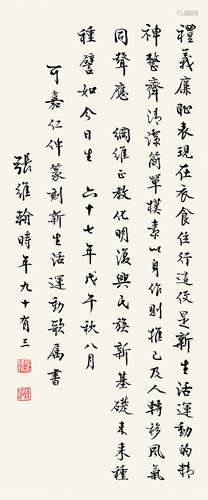 禮義廉恥表現在衣食住行這便是新生活運動的精
神整齊清潔簡單樸素以身作則推己及人轉移風氣
同聲應 綱維正教化明復興民族新基礎未來種
種譬如今日生 六十七年戊午秋八月
可嘉仁仲篆刻新生活運動歌属書
張維翰時年九十有三